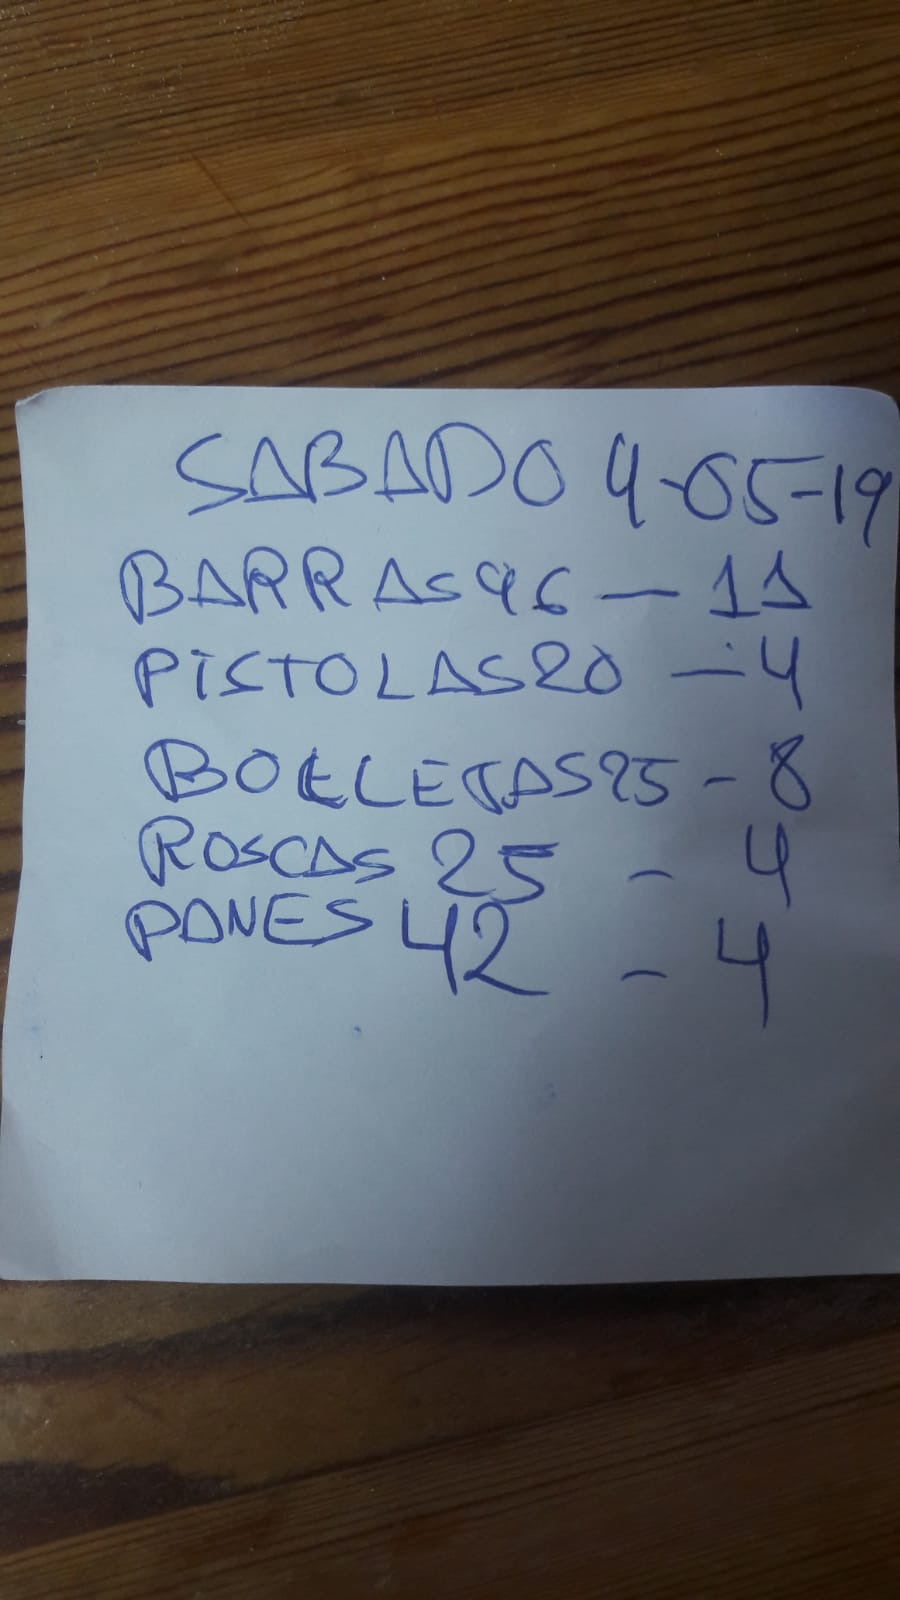 SABADO 4-05-19
BARRAS 46 — 11
PISTOLAS 20 — 4
BOLLETAS 25 - 8
ROSCAS 25 - 4
PANES 42 - 4